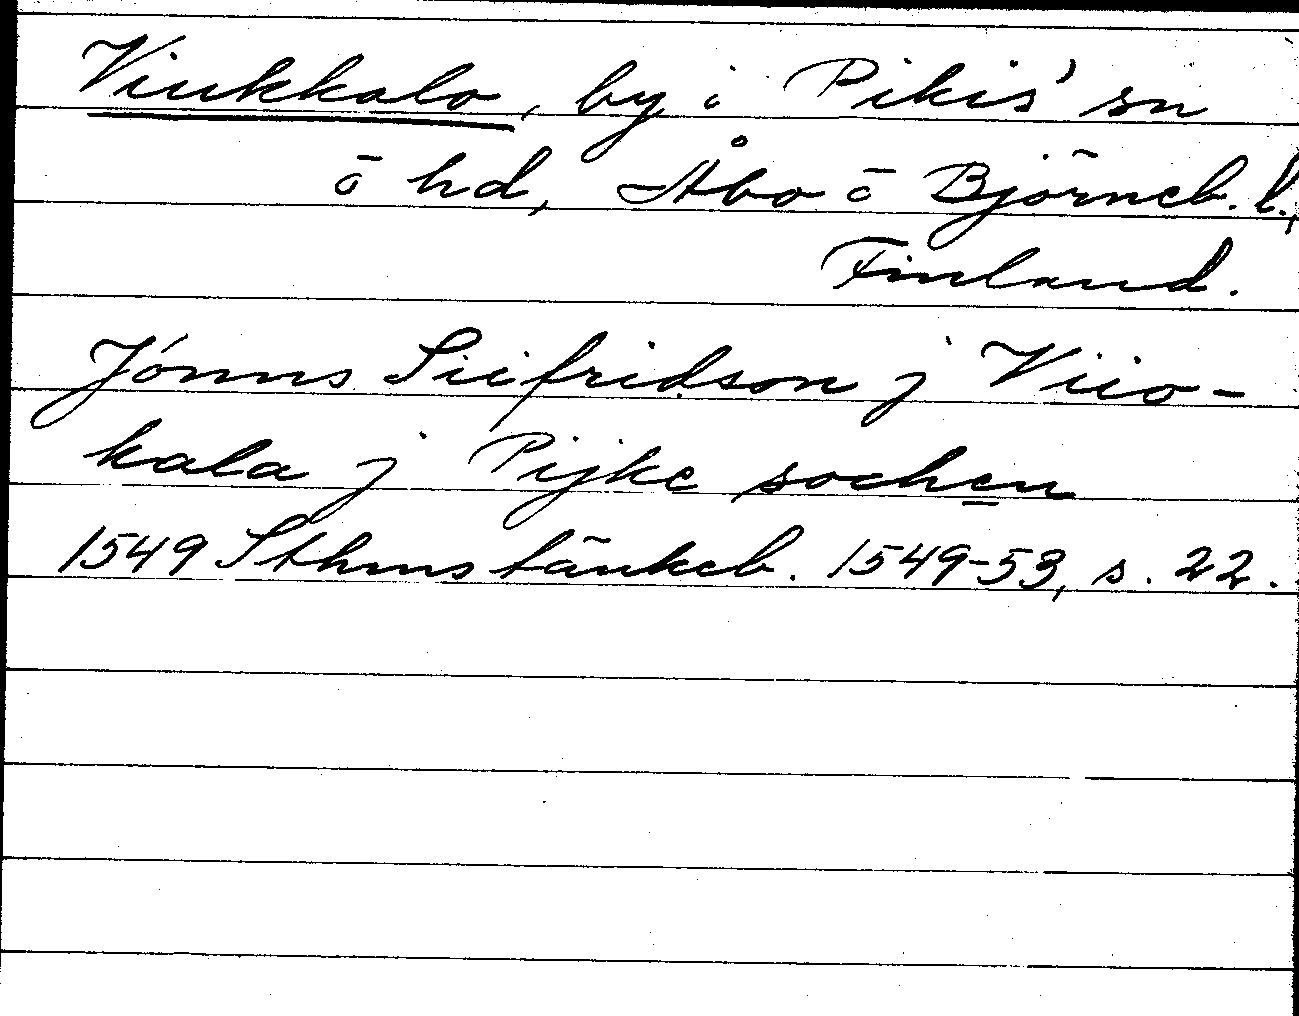 Viukkalo, by i Pikis' sn
o hd, Åbo o Björneb. l.,
Finland.
Jönns Siifridson j Viio-
kala j Pijke sochen
1549 Sthms tänkeb. 1549-53, s. 22.